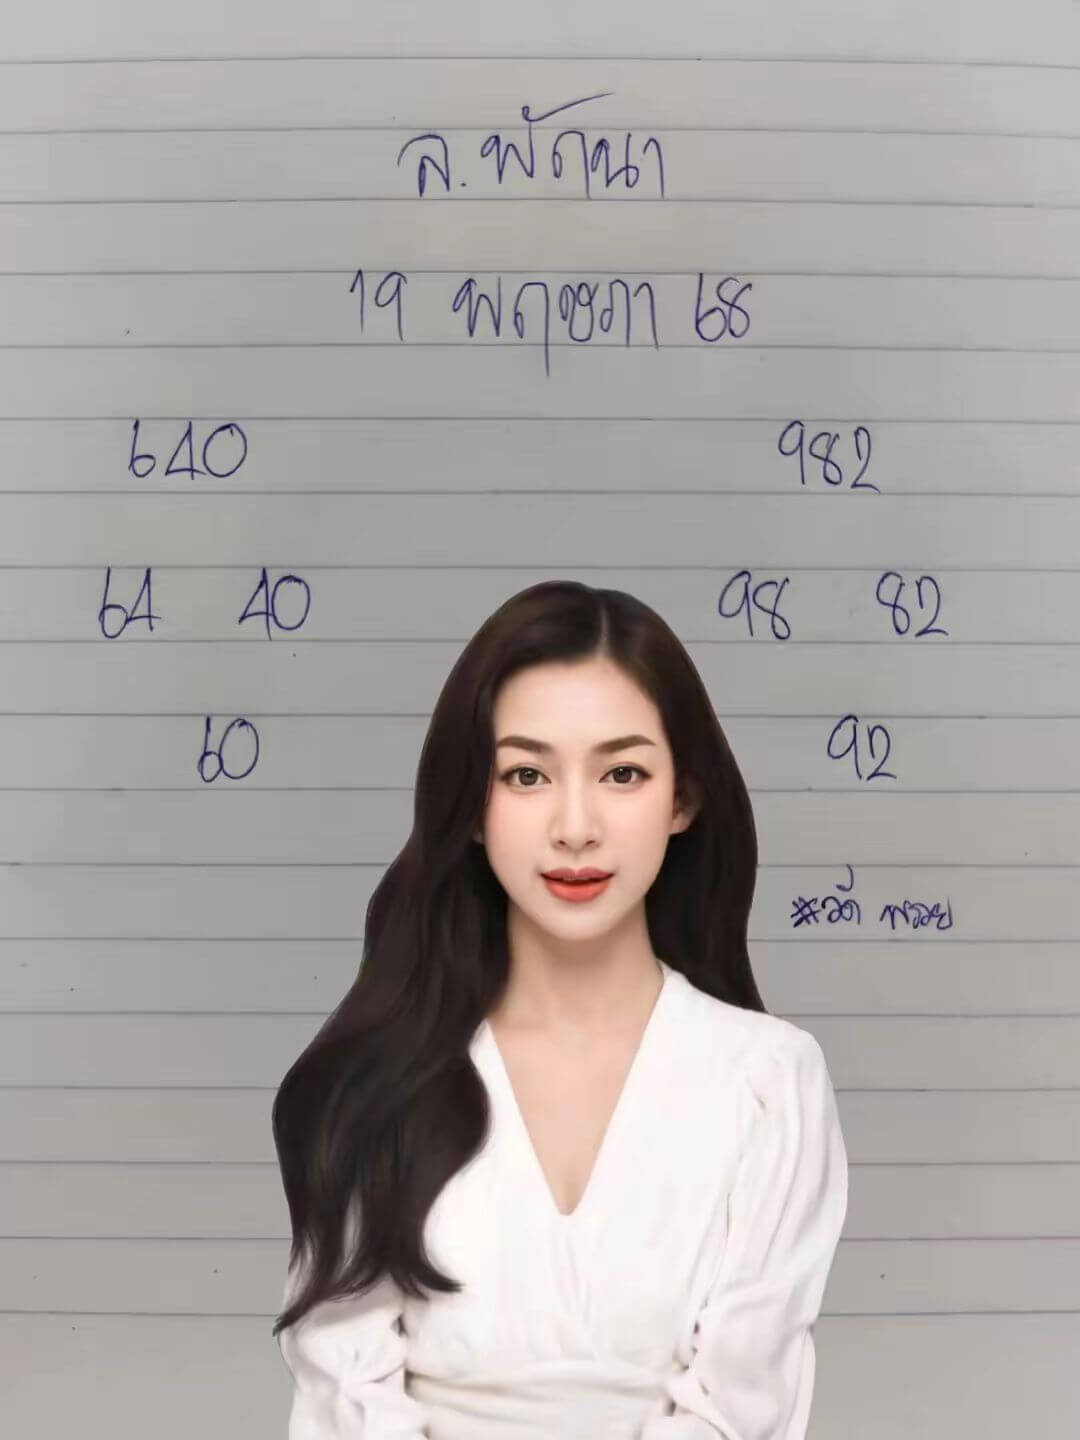 ล.พัฒนา
19 พฤษภา 68
640 982
64 40 98 82
60 92